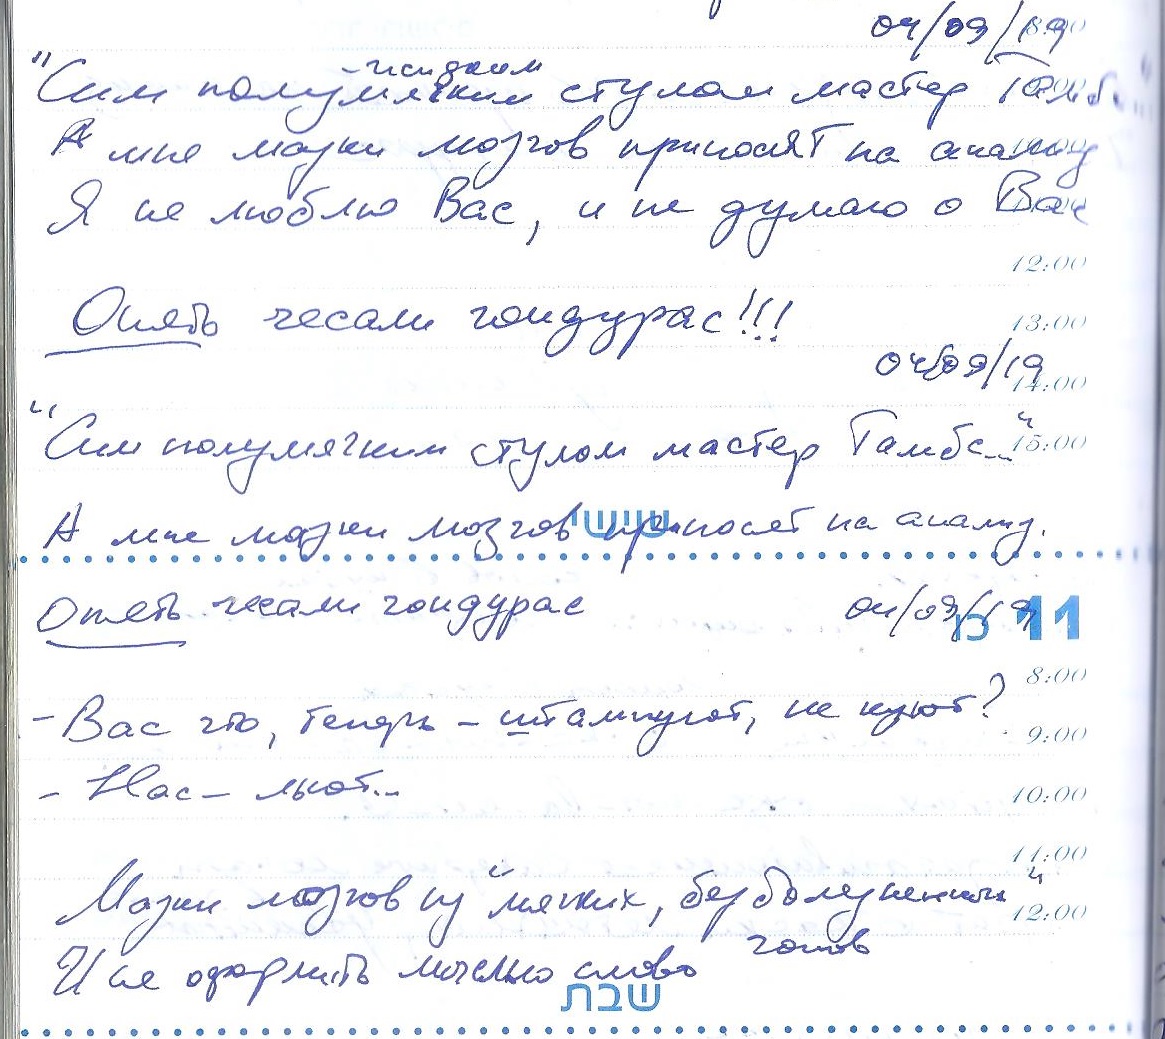 04/09/19
8:00
-жидким
"Сим полумягким стулом мастер Гамбс..."
А мне мазки мозгов приносят на анализ
Я не люблю Вас, и не думаю о Вас
12:00
Опять чесали гондурас!!!
13:00
04/09/19
14:00
"Сим полумягким стулом мастер Гамбс..."
15:00
А мне мазки мозгов приносят на анализ.
שישי
Опять чесали гондурас
04/09/19
11
8:00
- Вас что, теперь - штампуют, не куют?
9:00
- Нас - льют...
10:00
11:00
Мазки мозгов из "мягких, безболезненных"
12:00
И не оформить мыслью слово
готов
שבת